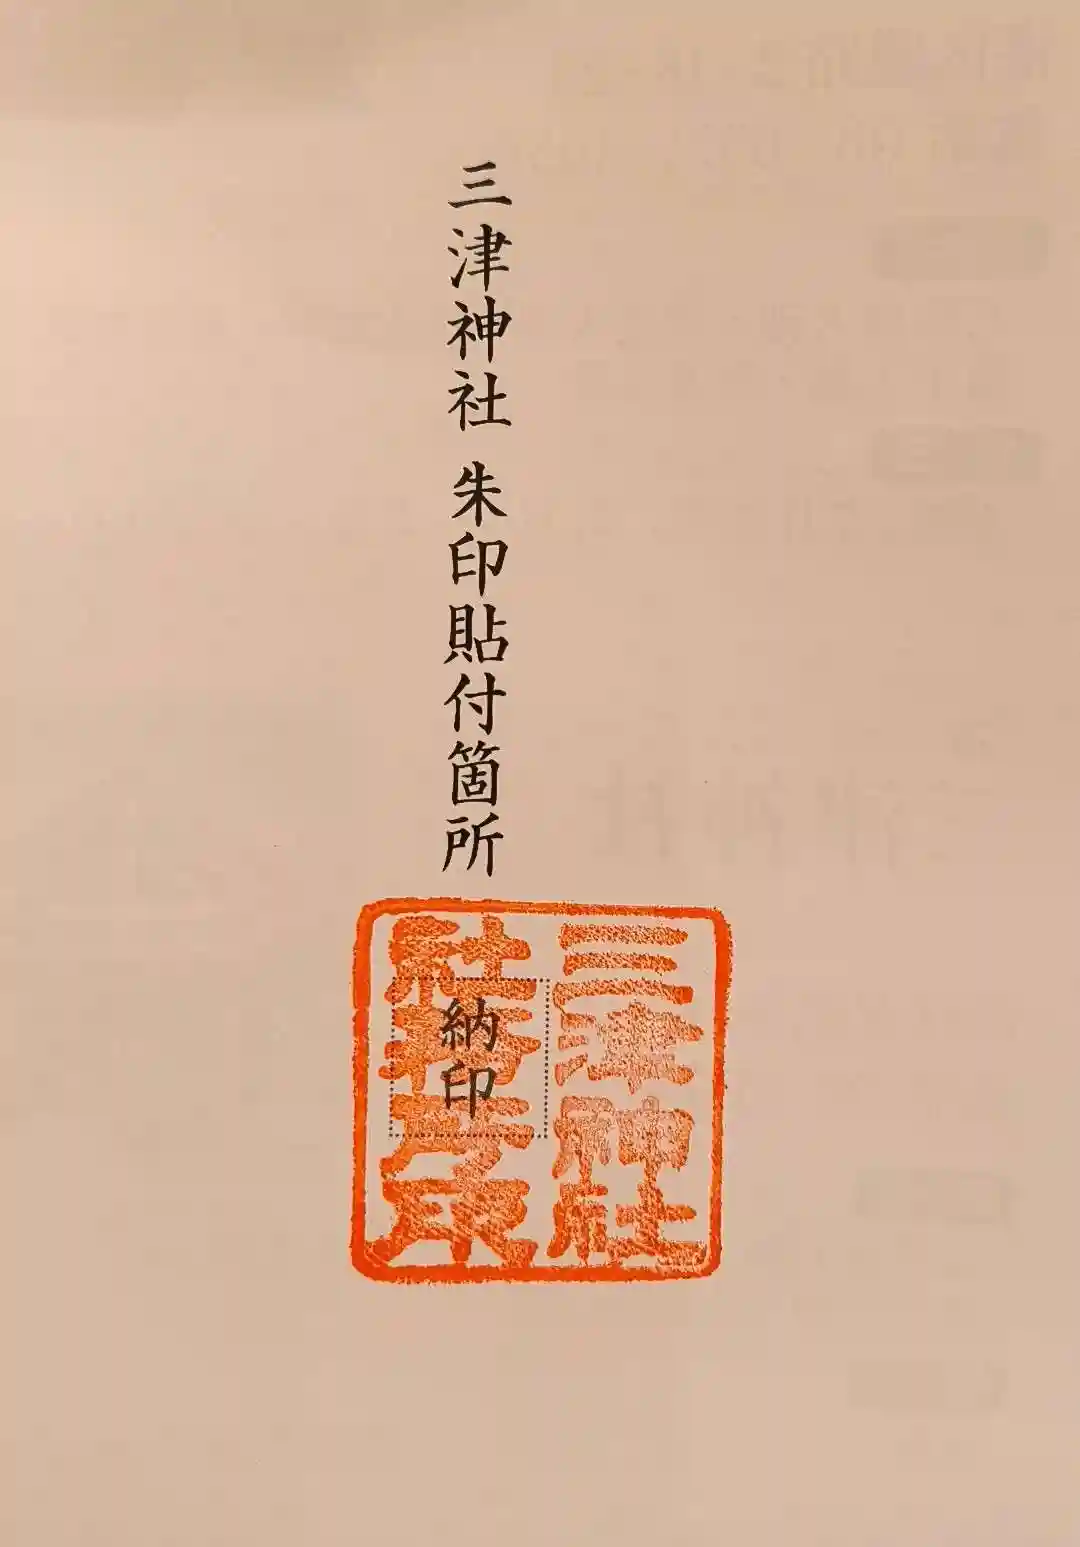 三津神社 朱印貼付箇所
納印
三津神社
社務所印